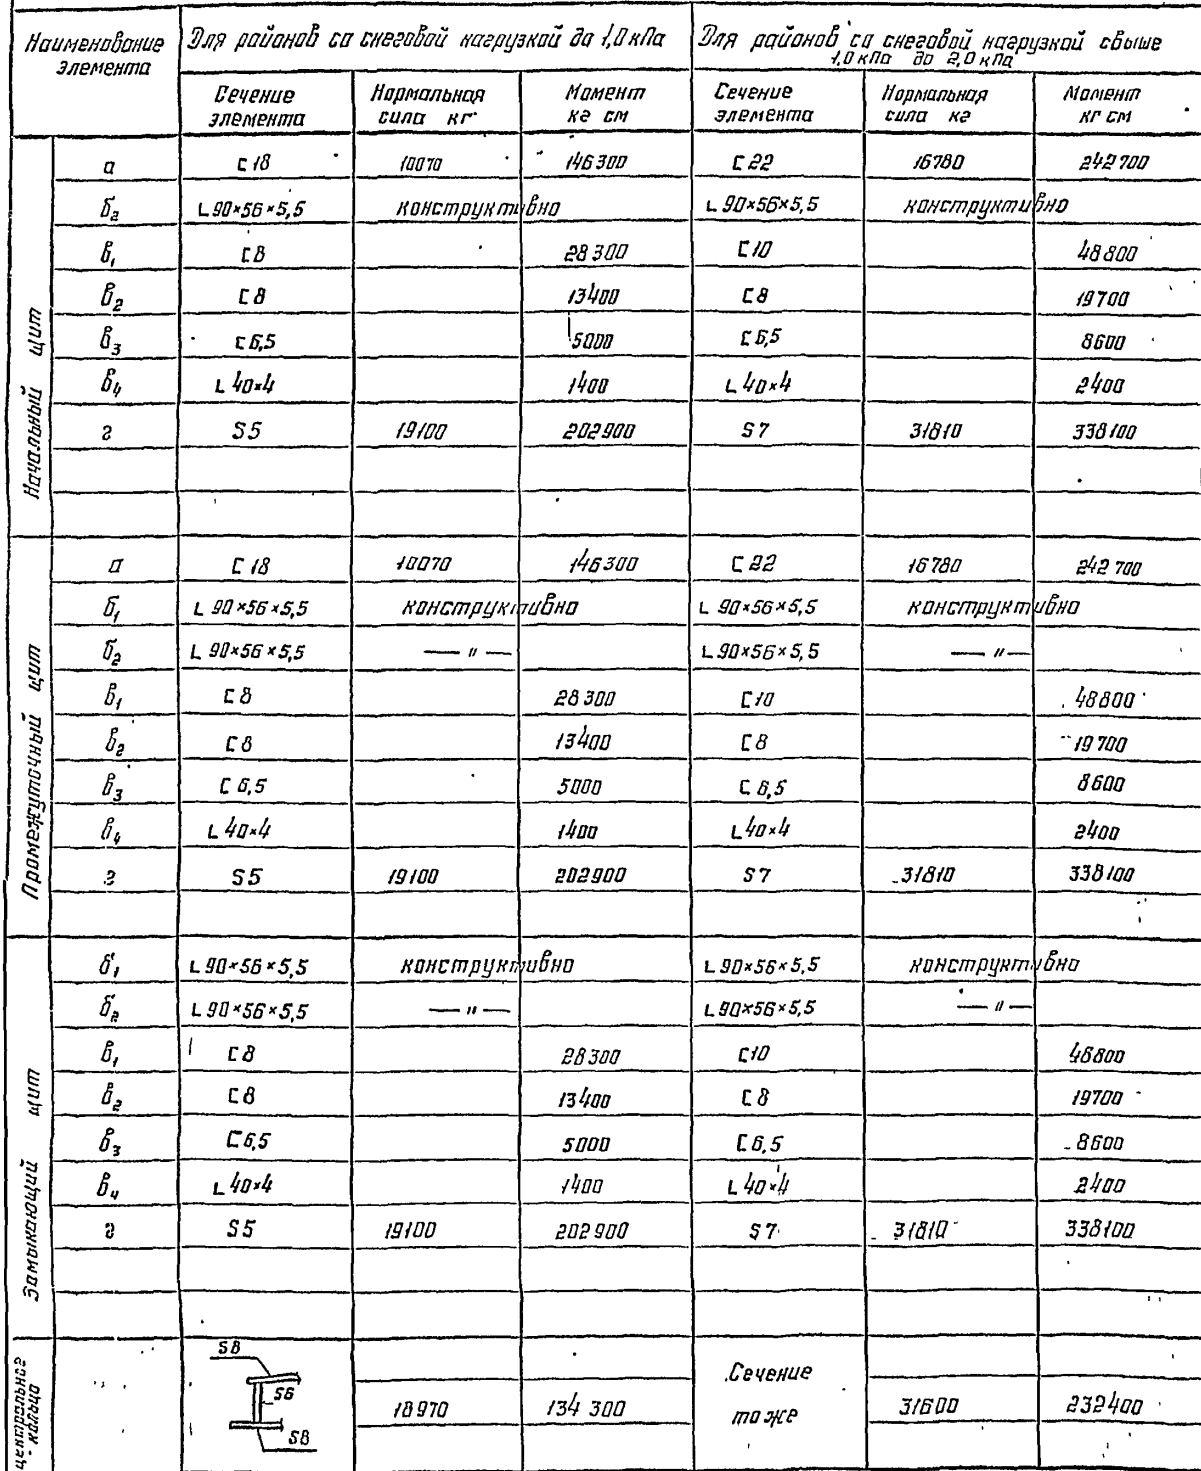 Наименование элемента
Для районов со снеговой нагрузкой до 1,0 кПа
Для районов со снеговой нагрузкой свыше 1,0 кПа до 2,0 кПа
Сечение элемента
Нормальная сила кг
Момент кг см
Сечение элемента
Нормальная сила кг
Момент кг см
Начальный щит
а [ 18 10070 146300 [ 22 16780 242700
б₂ L 90×56×5,5 конструктивно L 90×56×5,5 конструктивно
в₁ [ 8 28300 [ 10 48800
в₂ [ 8 13400 [ 8 19700
в₃ [ 6,5 5000 [ 6,5 8600
в₄ L 40×4 1400 L 40×4 2400
г S5 19100 202900 S7 31810 338100
Промежуточный щит
а [ 18 10070 146300 [ 22 16780 242700
б₁ L 90×56×5,5 конструктивно L 90×56×5,5 конструктивно
б₂ L 90×56×5,5 — " — L 90×56×5,5 — " —
в₁ [ 8 28300 [ 10 48800
в₂ [ 8 13400 [ 8 19700
в₃ [ 6,5 5000 [ 6,5 8600
в₄ L 40×4 1400 L 40×4 2400
г S5 19100 202900 S7 31810 338100
Замыкающий щит
б₁ L 90×56×5,5 конструктивно L 90×56×5,5 конструктивно
б₂ L 90×56×5,5 — " — L 90×56×5,5 — " —
в₁ [ 8 28300 [ 10 48800
в₂ [ 8 13400 [ 8 19700
в₃ [ 6,5 5000 [ 6,5 8600
в₄ L 40×4 1400 L 40×4 2400
г S5 19100 202900 S7 31810 338100
центральное кольцо
S8
S6
S8
18970 134300
Сечение то же
31600 232400